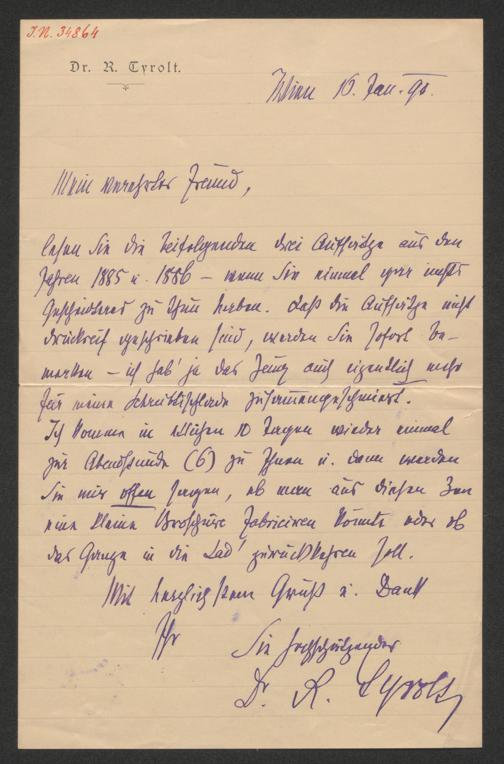 J.N. 34864
Dr. R. Tyrolt.
Wien 16. Jan. 90.
Mein verehrter Freund,
lesen Sie die beifolgenden drei Aufsätze aus den
Jahren 1885 u. 1886 – wenn Sie einmal gar nichts
Gescheiteres zu thun haben. Daß die Aufsätze nicht
druckreif geschrieben sind, werden Sie sofort be-
merken – ich hab' ja das Zeug auch eigentlich mehr
für meine Schreibtischlade zusammengeschmiert.
Ich komme in etlichen 10 Tagen wieder einmal
zur Abendstunde (6) zu Ihnen u. dann werden
Sie mir offen sagen, ob man aus diesen
eine kleine Broschüre fabriciren könnte oder ob
das Ganze in die Lad' zurückkehren soll.
Mit herzlichstem Gruß u. Dank
Ihr
Sie hochschätzender
Dr. R. Tyrolt